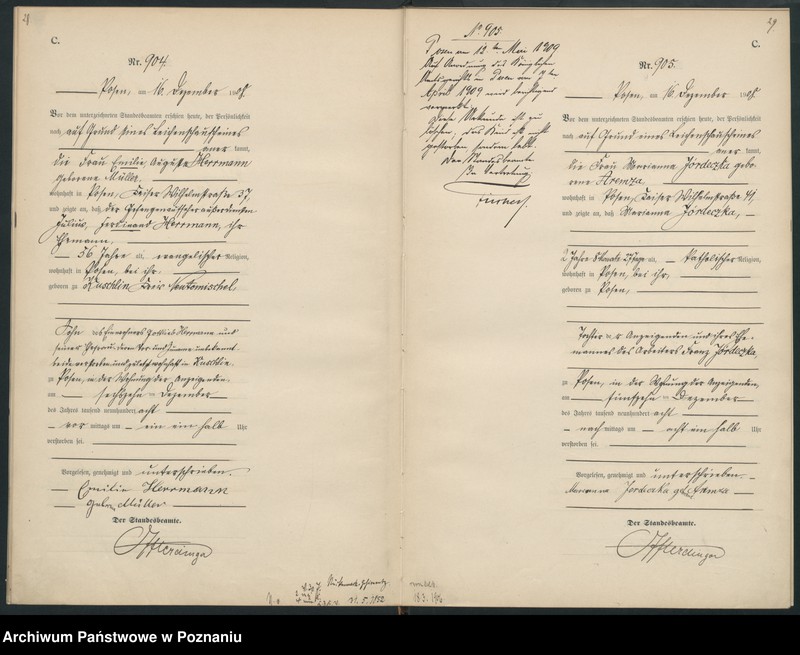 C.
Nr. 904.
Posen, am 16. Dezember 1908.
Vor dem unterzeichneten Standesbeamten erschien heute, der Persönlichkeit
nach auf Grund eines Leichenschauscheines
kannt,
die Frau Emilie Auguste Herrmann
geborene Müller,
wohnhaft in Posen, Kaiser Wilhelmstraße 37,
und zeigte an, daß der Gefangenaufseher
Julius Ferdinand Herrmann, ihr
Ehemann,
56 Jahre alt, evangelischer Religion,
wohnhaft in Posen, bei ihr
geboren zu Kuschlin Kreis Neutomischel
Sohn des Gottlieb Herrmann und
seiner Ehefrau, deren unbekannt
beide verstorben und zuletzt wohnhaft in Kuschlin,
zu Posen, in der Wohnung der Anzeigenden
am sechszehn = Dezember
des Jahres tausend neunhundert acht
vor mittags um ein ein halb Uhr
verstorben sei.
Vorgelesen, genehmigt und unterschrieben.
Emilie Herrmann
geb. Müller
Der Standesbeamte.
No. 905
Posen am 12. ten Mai 1909
Auf Anordnung des Königlichen
Amtsgerichts in Posen vom
April 1909 wird berichtigend
vermerkt:
Diese Urkunde ist zu
löschen; das Kind ist nicht
gestorben sondern lebt.
Der Standesbeamte
In Vertretung
29.
C.
Nr. 905.
Posen, am 16. Dezember 1908.
Vor dem unterzeichneten Standesbeamten erschien heute, der Persönlichkeit
nach auf Grund eines Leichenschauscheines
kannt,
die Frau Marianna Jórdeczka gebo-
rene Aremza,
wohnhaft in Posen, Kaiser Wilhelmstraße 41,
und zeigte an, daß Marianna Jórdeczka,
2 Jahre 8 Monate 27 Tage alt, katholischer Religion,
wohnhaft in Posen, bei ihr,
geboren zu Posen,
Tochter der Anzeigenden und ihres Ehe-
mannes des Arbeiters Franz Jórdeczka,
zu Posen, in der Wohnung der Anzeigenden,
am fünfzehn = Dezember
des Jahres tausend neunhundert acht
nach mittags um acht ein halb Uhr
verstorben sei.
Vorgelesen, genehmigt und unterschrieben.
Marianna Jordeczka geb. Aremza
Der Standesbeamte.
Archiwum Państwowe w Poznaniu